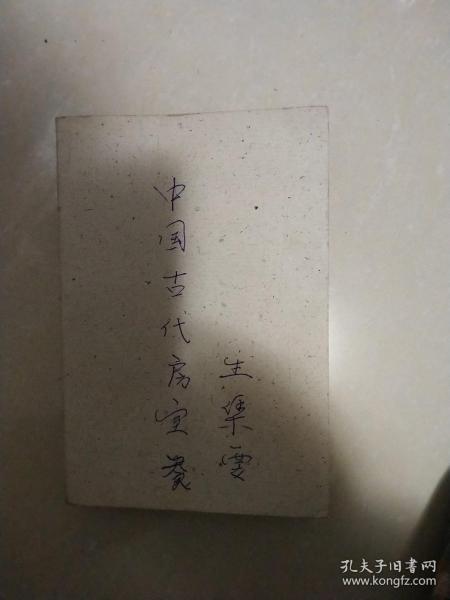 中国古代房室养
生集要
孔夫子旧书网
www.kongfz.com